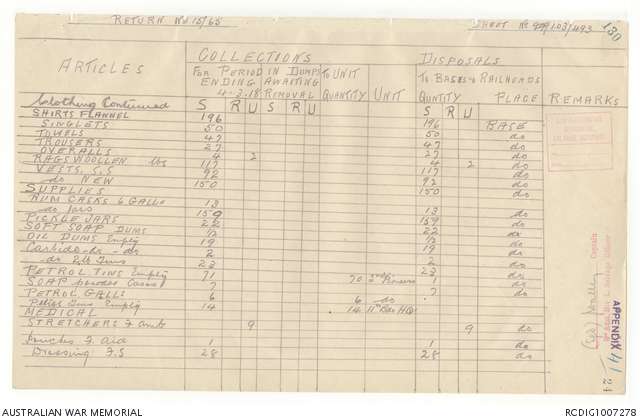 RETURN No 15/65
SHEET No
130
ARTICLES
COLLECTIONS
FOR PERIOD ENDING 4-2-18
IN DUMPS AWAITING REMOVAL
TO UNIT
QUANTITY UNIT
DISPOSALS
TO BASES & RAILHEADS
QUNTITY PLACE
REMARKS
S R U S R U S R U
Clothing Continued
SHIRTS FLANNEL 196 196 BASE
SINGLETS 50 50 do
TOWELS 47 47 do
TROUSERS 27 27 do
OVERALLS 4 2 4 2 do
RAGS WOOLLEN lbs 117 117 do
VESTS, S.S 92 92 do
do NEW 150 150 do
SUPPLIES
RUM CASKS 6 GALLS 13 13 do
do Jars 159 159 do
PICKLE JARS 22 22 do
SOFT SOAP DUMS 12 12 do
OIL DUMS Empty 19 19 do
Carbide do do 2 2 do
do 2lb Tins 23 23 do
PETROL TINS Empty 71 70 Pioneers 1 do
SOAP 7 7 do
PETROL GALLS 6 6 do
Petrol Tins Empty 14 14 11th Bde HQ
MEDICAL
STRETCHERS F. Amb 9 9 do
F. Aid 1 1 do
Dressing F.S 28 28 do
Captain
APPENDIX 41
24
AUSTRALIAN WAR MEMORIAL
RCDIG1007278